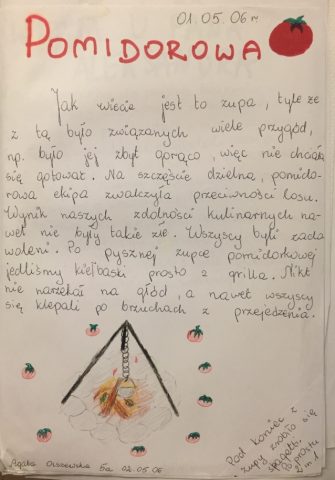 01.05.06r
POMIDOROWA
Jak wiecie jest to zupa, tyle że
z tą było związanych wiele przygód,
np. było jej zbyt gorąco, więc nie chciała
się gotować. Na szczęście dzielna, pomido-
rowa ekipa zwalczyła przeciwności losu.
Wynik naszych zdolności kulinarnych na-
wet nie były takie złe. Wszyscy byli zado
woleni. Po pysznej zupce pomidorkowej
jedliśmy kiełbaski prosto z grilla. Nikt
nie narzekał na głód, a nawet wszyscy
się klepali po brzuchach z przejedzenia.
Pod koniec z
zupy zrobiło się
spagetti.
Po prostu
2 in 1
Agata Olszewska 5a 02.05.06